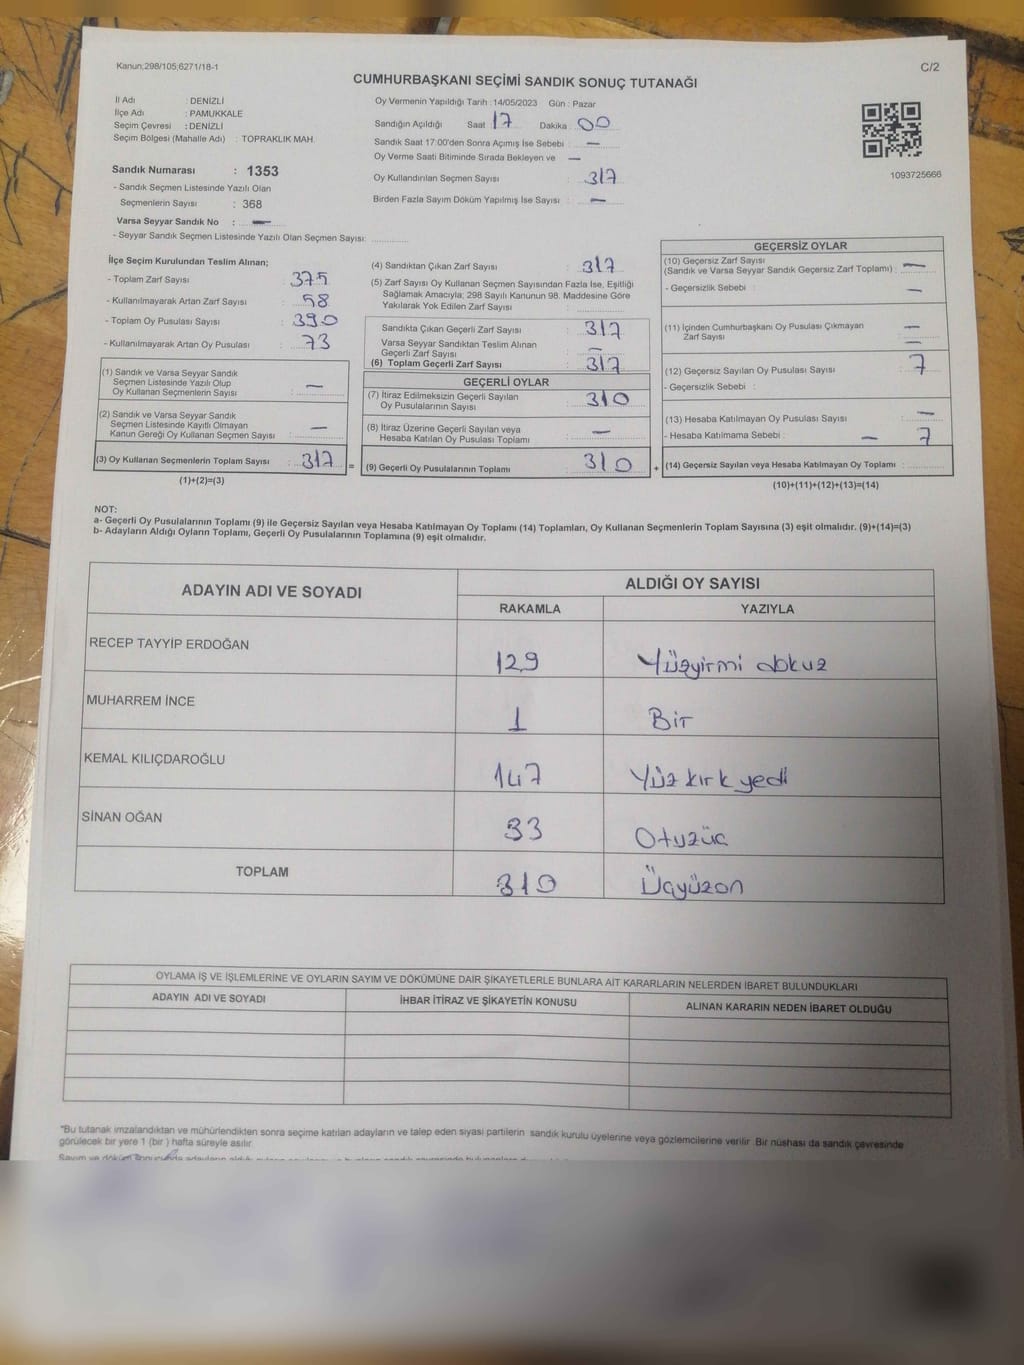 Kanun;298/105;6271/18-1
C/2
CUMHURBAŞKANI SEÇİMİ SANDIK SONUÇ TUTANAĞI
İl Adı : DENİZLİ
İlçe Adı : PAMUKKALE
Seçim Çevresi : DENİZLİ
Seçim Bölgesi (Mahalle Adı) : TOPRAKLIK MAH.
Sandık Numarası : 1353
- Sandık Seçmen Listesinde Yazılı Olan
Seçmenlerin Sayısı : 368
Varsa Seyyar Sandık No : —
- Seyyar Sandık Seçmen Listesinde Yazılı Olan Seçmen Sayısı:
Oy Vermenin Yapıldığı Tarih : 14/05/2023 Gün : Pazar
Sandığın Açıldığı Saat 17 Dakika : 00
Sandık Saat 17:00'den Sonra Açımış İse Sebebi : —
Oy Verme Saati Bitiminde Sırada Bekleyen ve —
Oy Kullandırılan Seçmen Sayısı : 317
Birden Fazla Sayım Döküm Yapılmış İse Sayısı : —
1093725666
İlçe Seçim Kurulundan Teslim Alınan;
- Toplam Zarf Sayısı : 375
- Kullanılmayarak Artan Zarf Sayısı : 58
- Toplam Oy Pusulası Sayısı : 390
- Kullanılmayarak Artan Oy Pusulası : 73
(1) Sandık ve Varsa Seyyar Sandık
Seçmen Listesinde Yazılı Olup
Oy Kullanan Seçmenlerin Sayısı : —
(2) Sandık ve Varsa Seyyar Sandık
Seçmen Listesinde Kayıtlı Olmayan
Kanun Gereği Oy Kullanan Seçmen Sayısı : —
(3) Oy Kullanan Seçmenlerin Toplam Sayısı : 317 =
(1)+(2)=(3)
(4) Sandıktan Çıkan Zarf Sayısı : 317
(5) Zarf Sayısı Oy Kullanan Seçmen Sayısından Fazla İse, Eşitliği
Sağlamak Amacıyla; 298 Sayılı Kanunun 98. Maddesine Göre
Yakılarak Yok Edilen Zarf Sayısı :
Sandıkta Çıkan Geçerli Zarf Sayısı : 317
Varsa Seyyar Sandıktan Teslim Alınan
Geçerli Zarf Sayısı : —
(6) Toplam Geçerli Zarf Sayısı : 317
GEÇERLİ OYLAR
(7) İtiraz Edilmeksizin Geçerli Sayılan
Oy Pusulalarının Sayısı : 310
(8) İtiraz Üzerine Geçerli Sayılan veya
Hesaba Katılan Oy Pusulası Toplamı : —
(9) Geçerli Oy Pusulalarının Toplamı : 310 +
GEÇERSİZ OYLAR
(10) Geçersiz Zarf Sayısı
(Sandık ve Varsa Seyyar Sandık Geçersiz Zarf Toplamı) : —
- Geçersizlik Sebebi : —
(11) İçinden Cumhurbaşkanı Oy Pusulası Çıkmayan —
Zarf Sayısı : —
(12) Geçersiz Sayılan Oy Pusulası Sayısı : 7
- Geçersizlik Sebebi :
(13) Hesaba Katılmayan Oy Pusulası Sayısı : —
- Hesaba Katılmama Sebebi : — 7
(14) Geçersiz Sayılan veya Hesaba Katılmayan Oy Toplamı :
(10)+(11)+(12)+(13)=(14)
NOT:
a- Geçerli Oy Pusulalarının Toplamı (9) ile Geçersiz Sayılan veya Hesaba Katılmayan Oy Toplamı (14) Toplamları, Oy Kullanan Seçmenlerin Toplam Sayısına (3) eşit olmalıdır. (9)+(14)=(3)
b- Adayların Aldığı Oyların Toplamı, Geçerli Oy Pusulalarının Toplamına (9) eşit olmalıdır.
ADAYIN ADI VE SOYADI
ALDIĞI OY SAYISI
RAKAMLA YAZIYLA
RECEP TAYYİP ERDOĞAN 129 Yüzyirmi dokuz
MUHARREM İNCE 1 Bir
KEMAL KILIÇDAROĞLU 147 Yüz kırk yedi
SİNAN OĞAN 33 Otuzüç
TOPLAM 310 Üçyüzon
OYLAMA İŞ VE İŞLEMLERİNE VE OYLARIN SAYIM VE DÖKÜMÜNE DAİR ŞİKAYETLERLE BUNLARA AİT KARARLARIN NELERDEN İBARET BULUNDUKLARI
ADAYIN ADI VE SOYADI İHBAR İTİRAZ VE ŞİKAYETİN KONUSU ALINAN KARARIN NEDEN İBARET OLDUĞU
*Bu tutanak imzalandıktan ve mühürlendikten sonra seçime katılan adayların ve talep eden siyasi partilerin sandık kurulu üyelerine veya gözlemcilerine verilir. Bir nüshası da sandık çevresinde
görülecek bir yere 1 (bir ) hafta süreyle asılır.